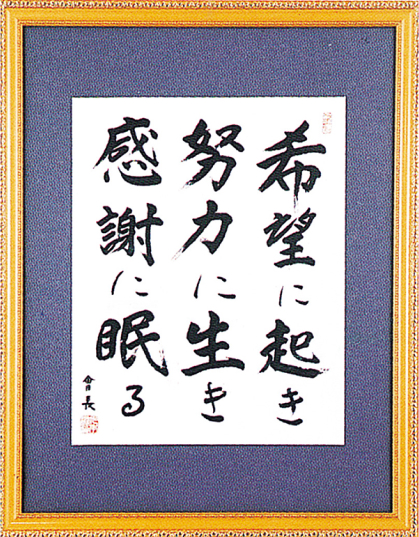 希望に起き
努力に生き
感謝に眠る
會長